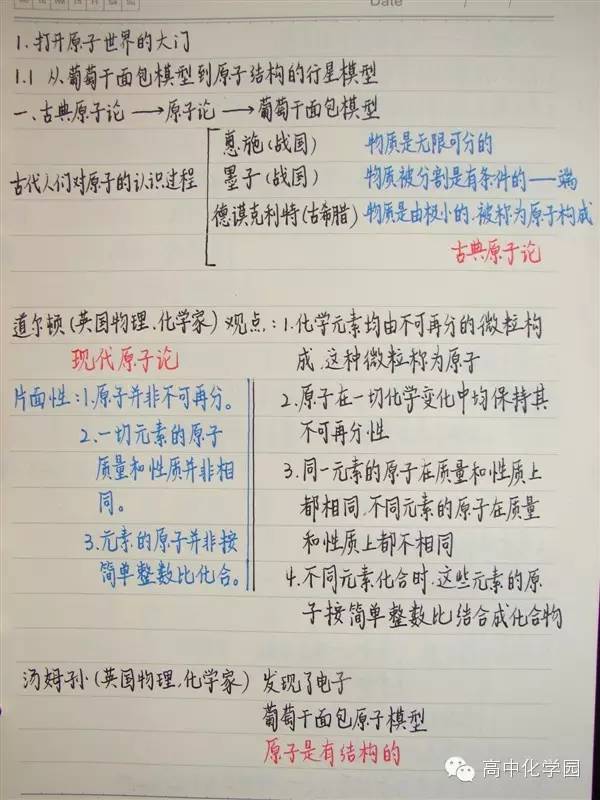 Date
1.打开原子世界的大门
1.1 从葡萄干面包模型到原子结构的行星模型
一、古典原子论→原子论→葡萄干面包模型
古代人们对原子的认识过程
惠施(战国) 物质是无限可分的
墨子(战国) 物质被分割是有条件的——端
德谟克利特(古希腊) 物质是由极小的、被称为原子构成
古典原子论
道尔顿(英国物理、化学家)观点:1.化学元素均由不可再分的微粒构
成、这种微粒称为原子
现代原子论
片面性:1.原子并非不可再分。
2.一切元素的原子
质量和性质并非相
同。
3.元素的原子并非按
简单整数比化合。
2.原子在一切化学变化中均保持其
不可再分性
3.同一元素的原子在质量和性质上
都相同,不同元素的原子在质量
和性质上都不相同
4.不同元素化合时、这些元素的原
子按简单整数比结合成化合物
汤姆孙(英国物理、化学家) 发现了电子
葡萄干面包原子模型
原子是有结构的
高中化学园